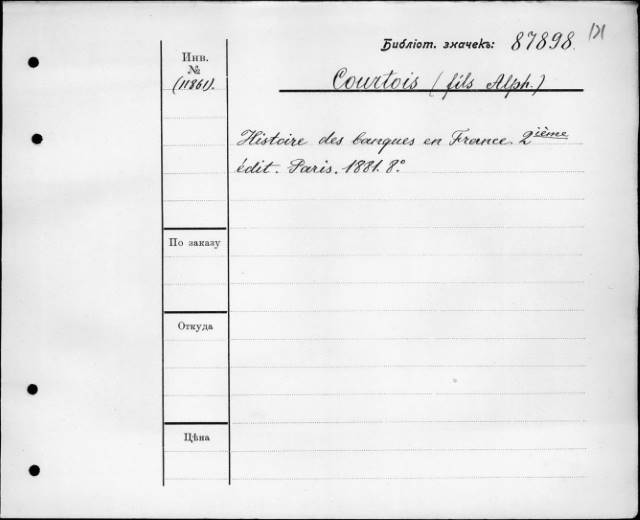 Библіот. значекъ: 87898. 121
Инв.
№
(11861).
Courtois (fils Alph.)
Histoire des banques en France. 2ième
édit. Paris. 1881. 8°
По заказу
Откуда
Цѣна